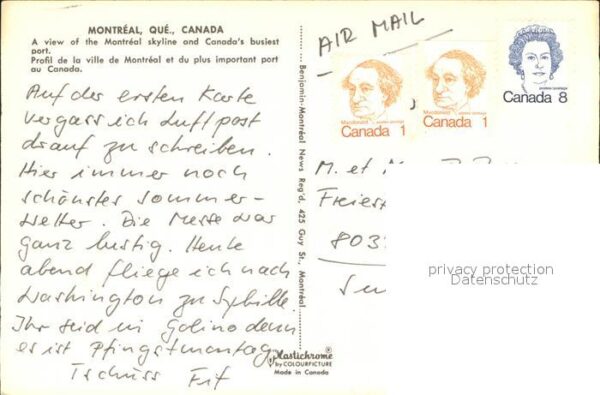 MONTRÉAL, QUÉ., CANADA
A view of the Montréal skyline and Canada's busiest
port.
Profil de la ville de Montréal et du plus important port
au Canada.
Auf der ersten Karte
vergass ich Luftpost
drauf zu schreiben.
Hier immer noch
schönstes Sommer-
wetter. Die Messe war
ganz lustig. Heute
abend fliege ich nach
Washington zu Sybille.
Ihr seid in Golino denn
es ist Pfingstmontag
Tschüss
Plastichrome®
by COLOURPICTURE
Made in Canada
Benjamin-Montréal News Reg'd, 425 Guy St., Montréal
AIR MAIL
Macdonald
Canada 1
Macdonald
Canada 1
Canada 8
M. et
803
privacy protection
Datenschutz